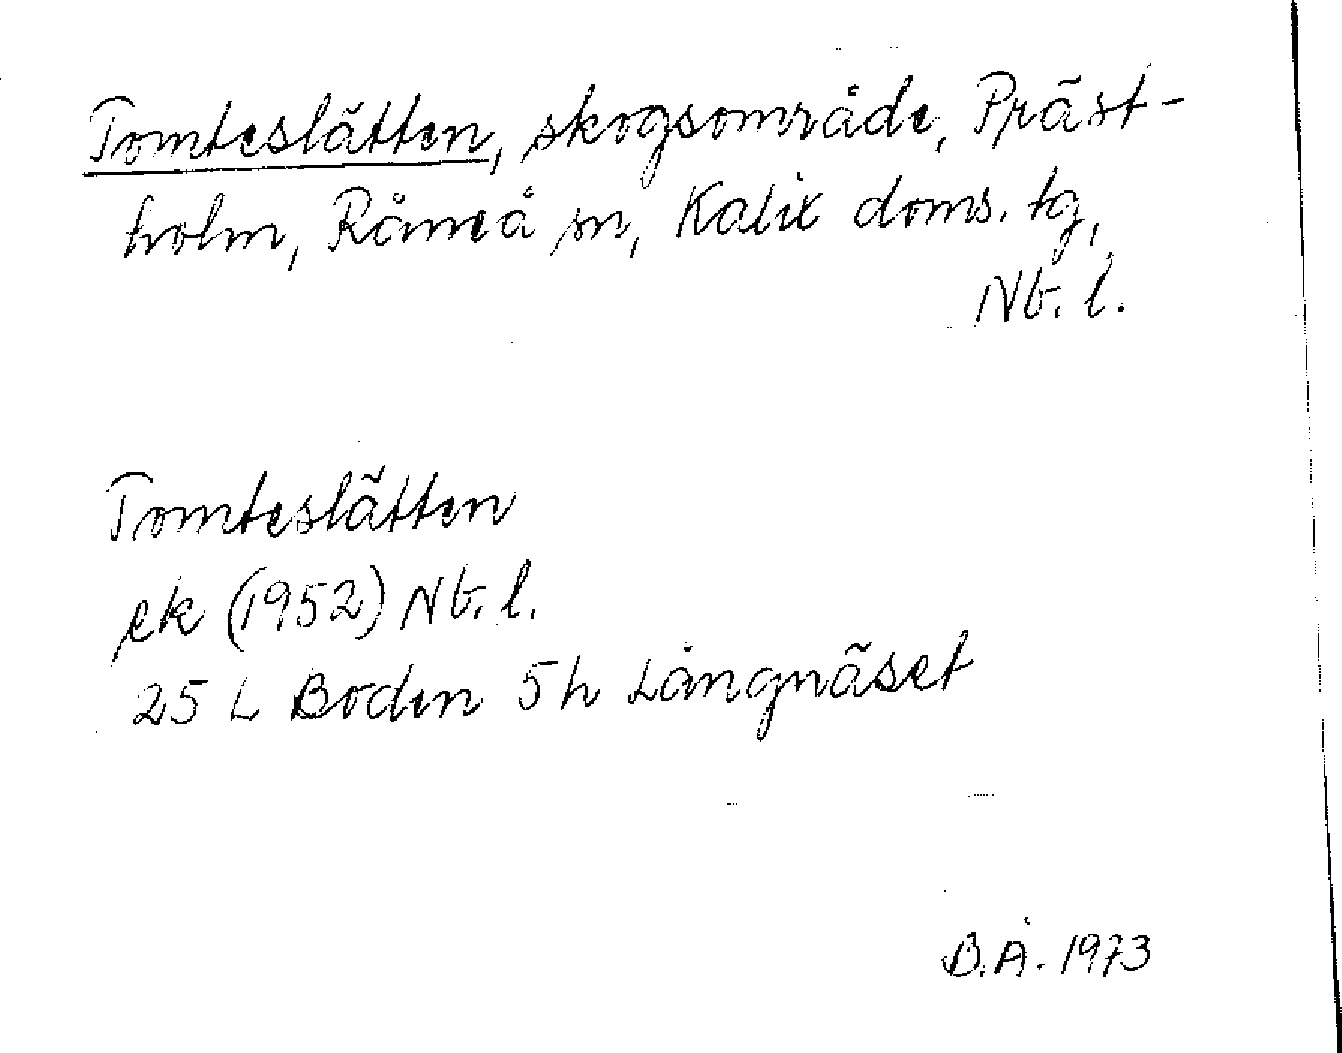 Tomteslätten, skogsområde, Präst-
holm, Råneå sn, Kalix doms. tg,
Nb. l.
Tomteslätten
ek (1952) Nb. l.
25 L Boden 5h Långnäset
B.Å. 1973